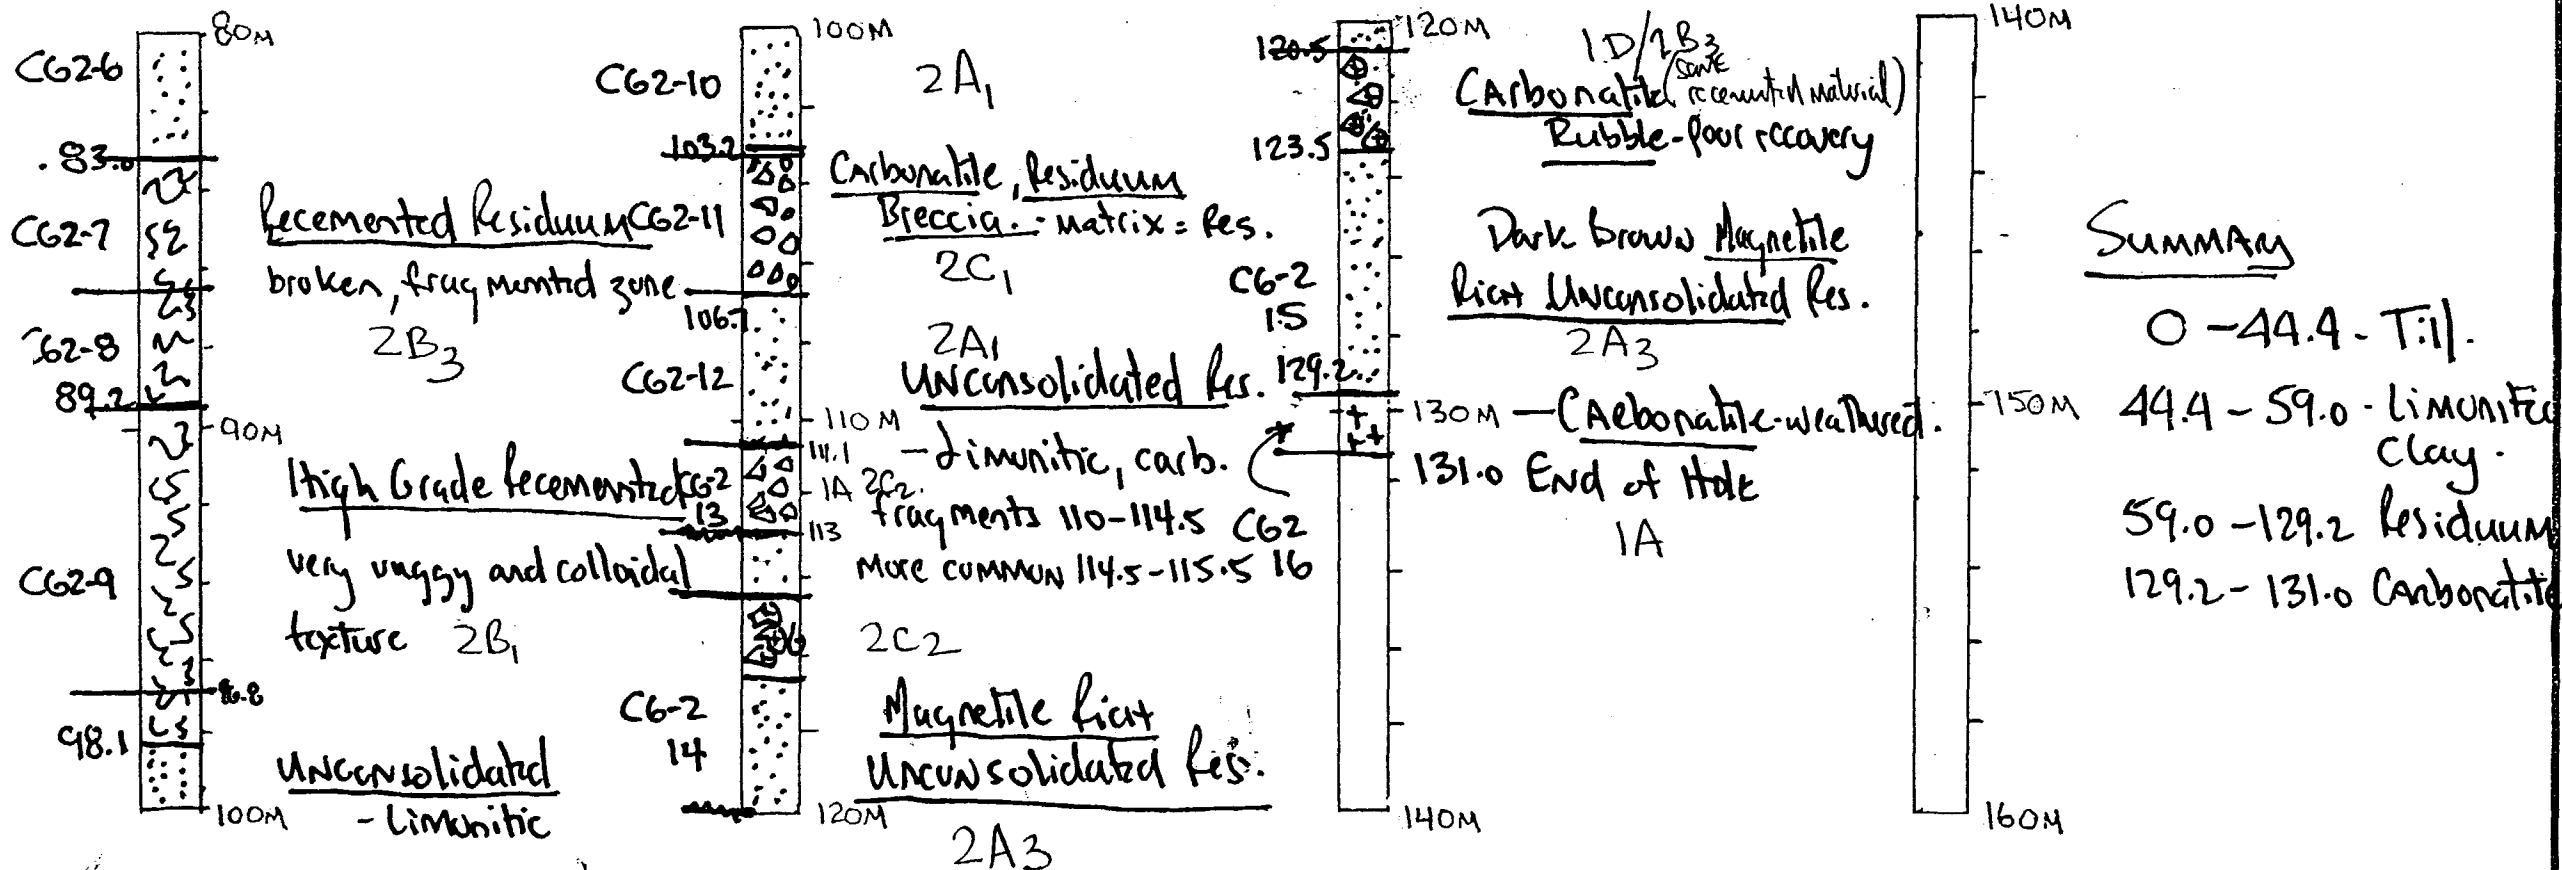 80M
CG2-6
83.0
CG2-7
Recemented Residuum
broken, fragmented zone
2B3
CG2-8
89.2
90M
High Grade Recemented
very vuggy and colloidal
texture 2B1
CG2-9
96.8
98.1
Unconsolidated
- Limonitic
100M
100M
CG2-10
2A1
103.2
Carbonatite, Residuum
Breccia. - Matrix = Res.
CG2-11
2C1
106.7
2A1
CG2-12
Unconsolidated Res.
110M
111.1
- Limonitic, carb.
1A 2C2.
fragments 110-114.5
CG-2
13
113
More common 114.5-115.5
2C2
CG-2
14
Magnetite Rich
Unconsolidated Res.
120M
2A3
120M
120.5
1D/2B3
Carbonatite (some recemented material)
Rubble - Poor recovery
123.5
Dark Brown Magnetite
Rich Unconsolidated Res.
2A3
CG-2
15
129.2
130M - Carbonatite-weathered.
131.0 End of Hole
1A
CG2
16
140M
140M
150M
160M
Summary
0 - 44.4 - Till.
44.4 - 59.0 - Limonitic
Clay.
59.0 - 129.2 Residuum
129.2 - 131.0 Carbonatite